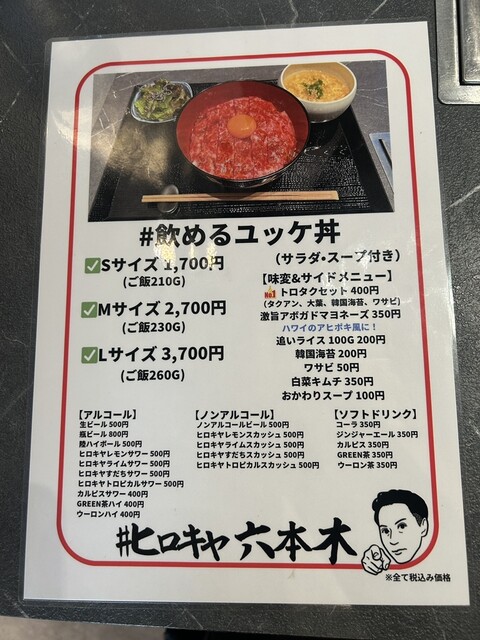 #飲めるユッケ丼
✅Sサイズ 1,700円
(ご飯210G)
✅Mサイズ 2,700円
(ご飯230G)
✅Lサイズ 3,700円
(ご飯260G)
(サラダ・スープ付き)
【味変&サイドメニュー】
No.1 トロタクセット 400円
(タクアン、大葉、韓国海苔、ワサビ)
激旨アボガドマヨネーズ 350円
ハワイのアヒポキ風に!
追いライス 100G 200円
韓国海苔 200円
ワサビ 50円
白菜キムチ 350円
おかわりスープ 100円
【アルコール】
生ビール 500円
瓶ビール 800円
陸ハイボール 500円
ヒロキヤレモンサワー 500円
ヒロキヤライムサワー 500円
ヒロキヤすだちサワー 500円
ヒロキヤトロピカルサワー 500円
カルピスサワー 400円
GREEN茶ハイ 400円
ウーロンハイ 400円
【ノンアルコール】
ノンアルコールビール 500円
ヒロキヤレモンスカッシュ 500円
ヒロキヤライムスカッシュ 500円
ヒロキヤすだちスカッシュ 500円
ヒロキヤトロピカルスカッシュ 500円
【ソフトドリンク】
コーラ 350円
ジンジャーエール 350円
カルピス 350円
GREEN茶 350円
ウーロン茶 350円
#ヒロキヤ 六本木
※全て税込み価格